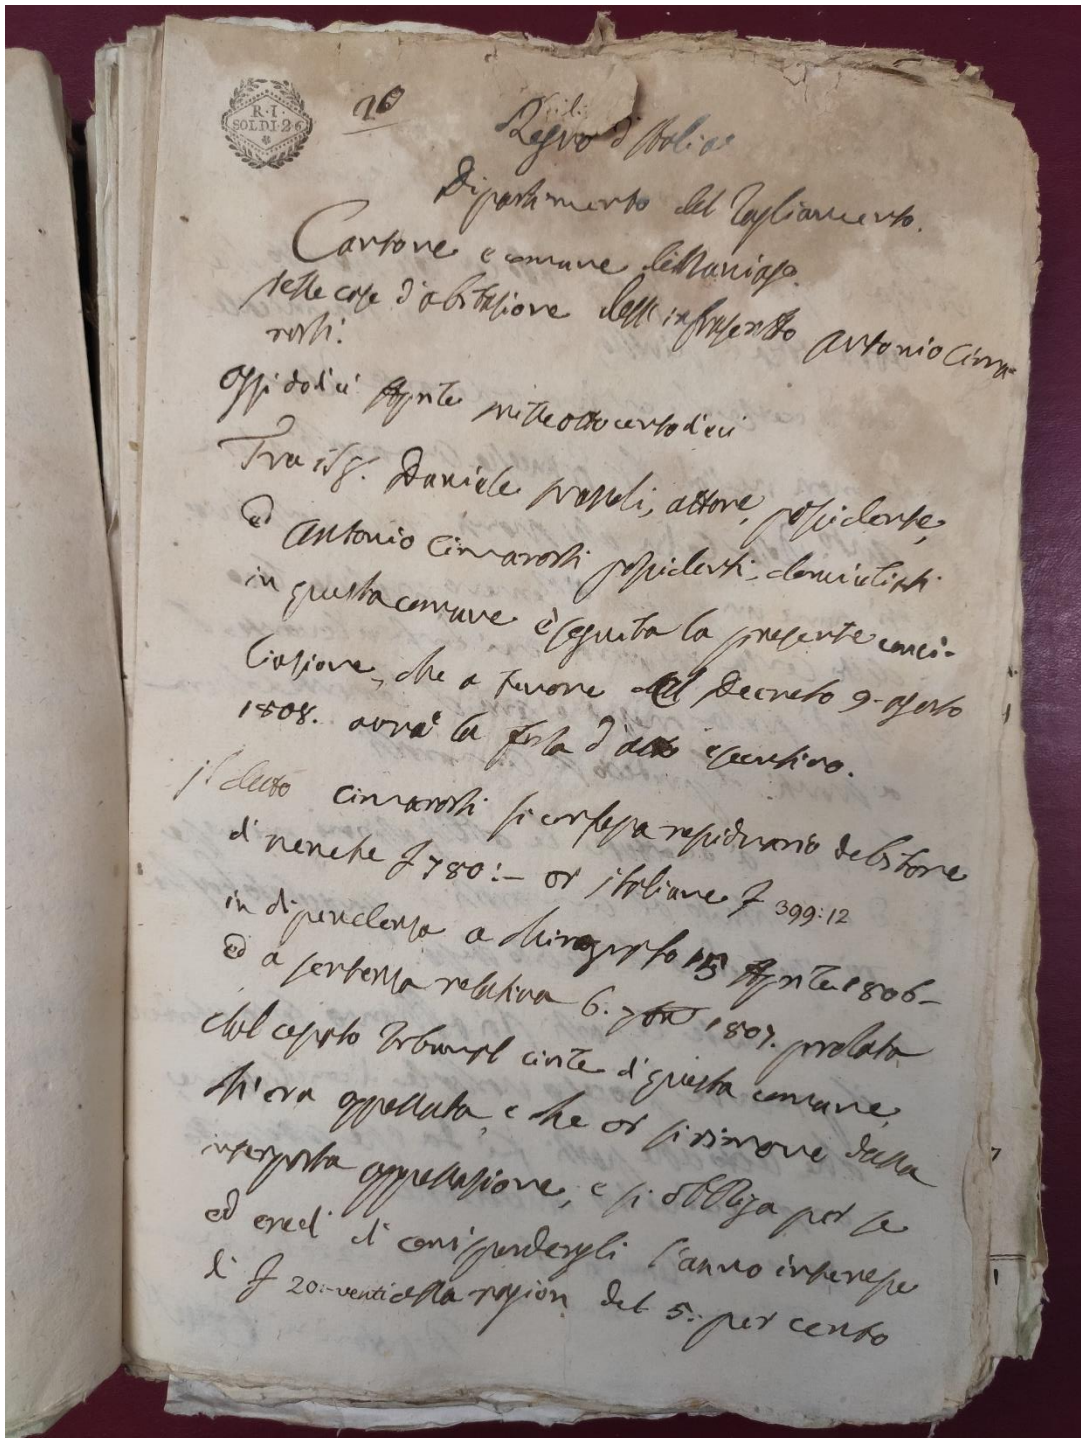 R·I·
SOLDI·26
26
Regno d'Italia
Dipartimento del Tagliamento.
Cantone e comune di Maniago.
nelle case d'abitazione dell'infrascritto Antonio Cima-
rosti.
Oggi dodici Aprile mille ottocento dieci
Tra il Sig.r Daniele attore, possidente,
ed Antonio Cimarosti possidenti, domiciliati
in questa comune è seguita la presente conci-
liazione, che a tenore del Decreto 9 agosto
1808. avrà la forza d'atto esecutivo.
il detto Cimarosti si confessa residuario debitore
di venete £ 780:– or italiane £ 399:12
in dipendenza a Chirografo 15 Aprile 1806–
ed a sentenza relativa 6. 7bre 1807. prolata
dal cessato Tribunal civile di questa comune,
ch'era appellata, e che or si rimove dalla
interposta appellazione, e si obbliga per se
ed eredi di corrispondergli l'annuo interesse
di £ 20:– venti alla ragion del 5: per cento